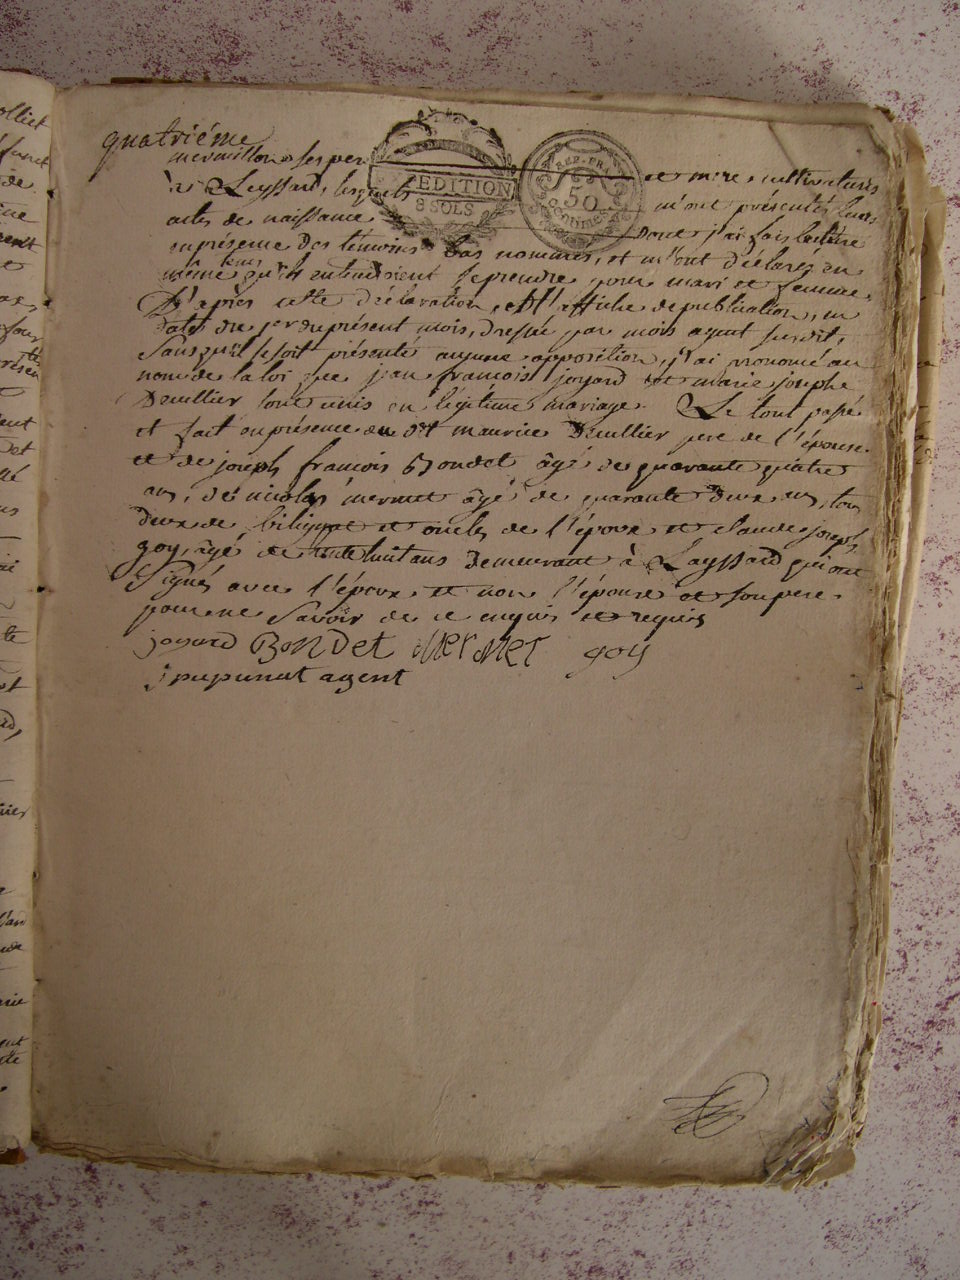 quatriéme
mermillon, ses pere et mere, cultivateurs
à Leyssard, lesquels m'ont présentés leurs
EXPEDITION
8 SOLS
REP. FRA.
50
centimes
actes de naissance dont j'ai fais lecture
en présence des témoins bas nommés, et m'ont déclarés en
même tems qu'ils entendoient se prendre pour mari et femme.
D'après cette déclaration, et l'affiche de publication, en
date du jer du présent mois, dressée par mois agent susdit,
sans qu'il se soit présenté aucune opposition, j'ai prononcé au
nom de la loi que jean francois joyard et marie josephe
Deullier sont unis en légitime mariage. Le tout passé
et fait en présence du dit maurice Deullier pere de l'épouse
et de joseph francois Bondet âgé de quarante quatre
ans, de nicolas mermet âgé de quarante deux ans, tous
deux de bilignat et oncles de l'époux et claude joseph
goy, âgé de huit ans demeurant à Layssard qui ont
signés avec l'époux et non l'épouse et son pere
pour ne savoir de ce enquis et requis
joyard Bondet Mermet goy
j pupunat agent